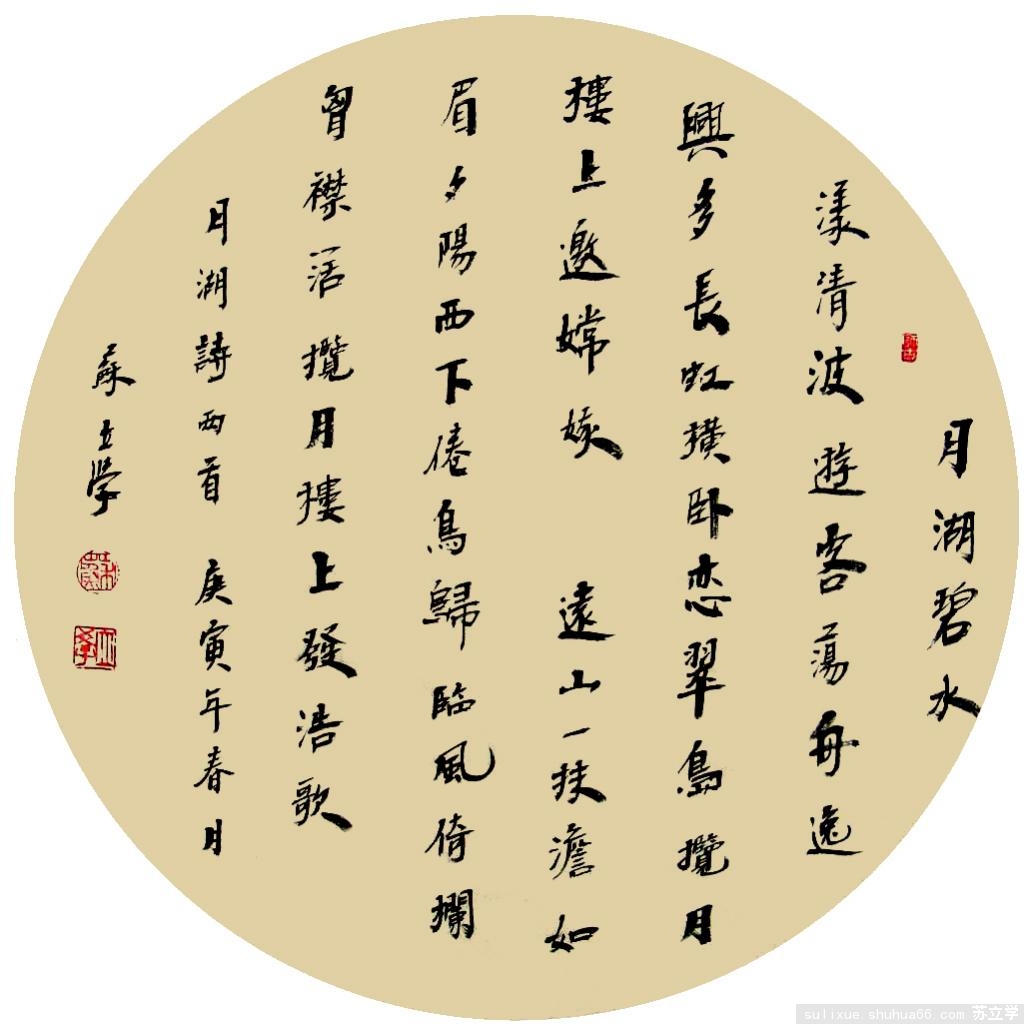 月湖碧水
漾清波遊客蕩舟逸
興多長虹横卧恋翠島攬月
樓上邀嫦娥
遠山一抹澹如
眉夕陽西下倦鳥歸臨風倚欄
胷襟活攬月樓上發浩歌
月湖詩兩首 庚寅年春月
蘇立學
sulixue.shuhua66.com 苏立学